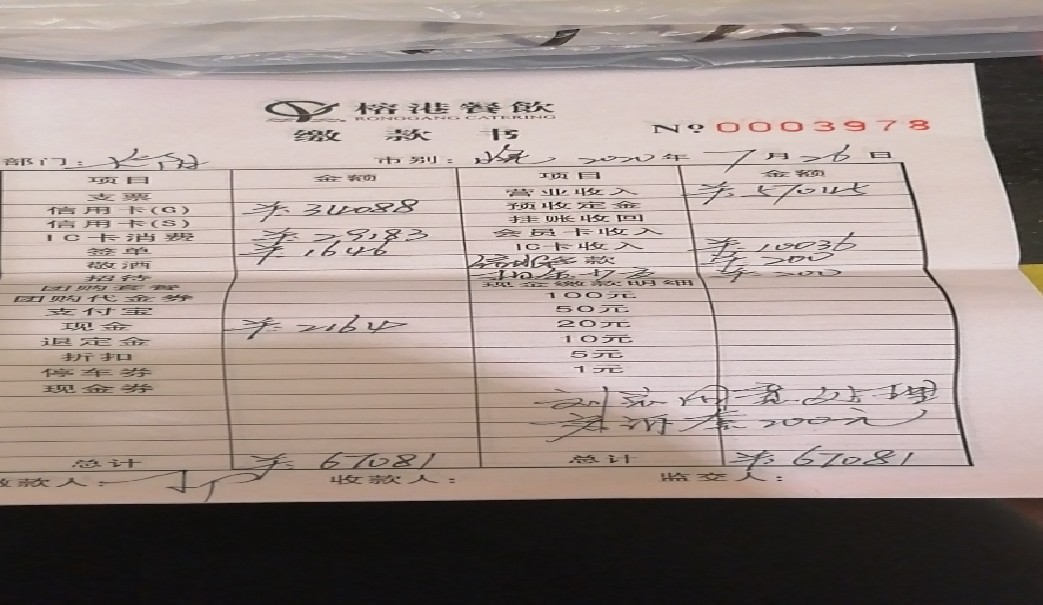 榕港餐飲
RONGGANG CATERING
缴款书 Nº 0003978
部门: 市别: 晚 2020年7月26日
项目 金额 项目 金额
支票 营业收入 羊57045
信用卡(G) 羊34088 预收定金
信用卡(S) 挂账收回
IC卡消费 羊29183 会员卡收入
签单 羊1646 IC卡收入 羊10036
敬酒 多款 羊200
招待 羊200
团购套餐 现金缴款明细
团购代金券 100元
支付宝 50元
现金 羊2164 20元
退定金 10元
折扣 5元
停车券 1元
现金券
同意处理
200元
总计 羊67081 总计 羊67081
缴款人: 收款人: 监交人: